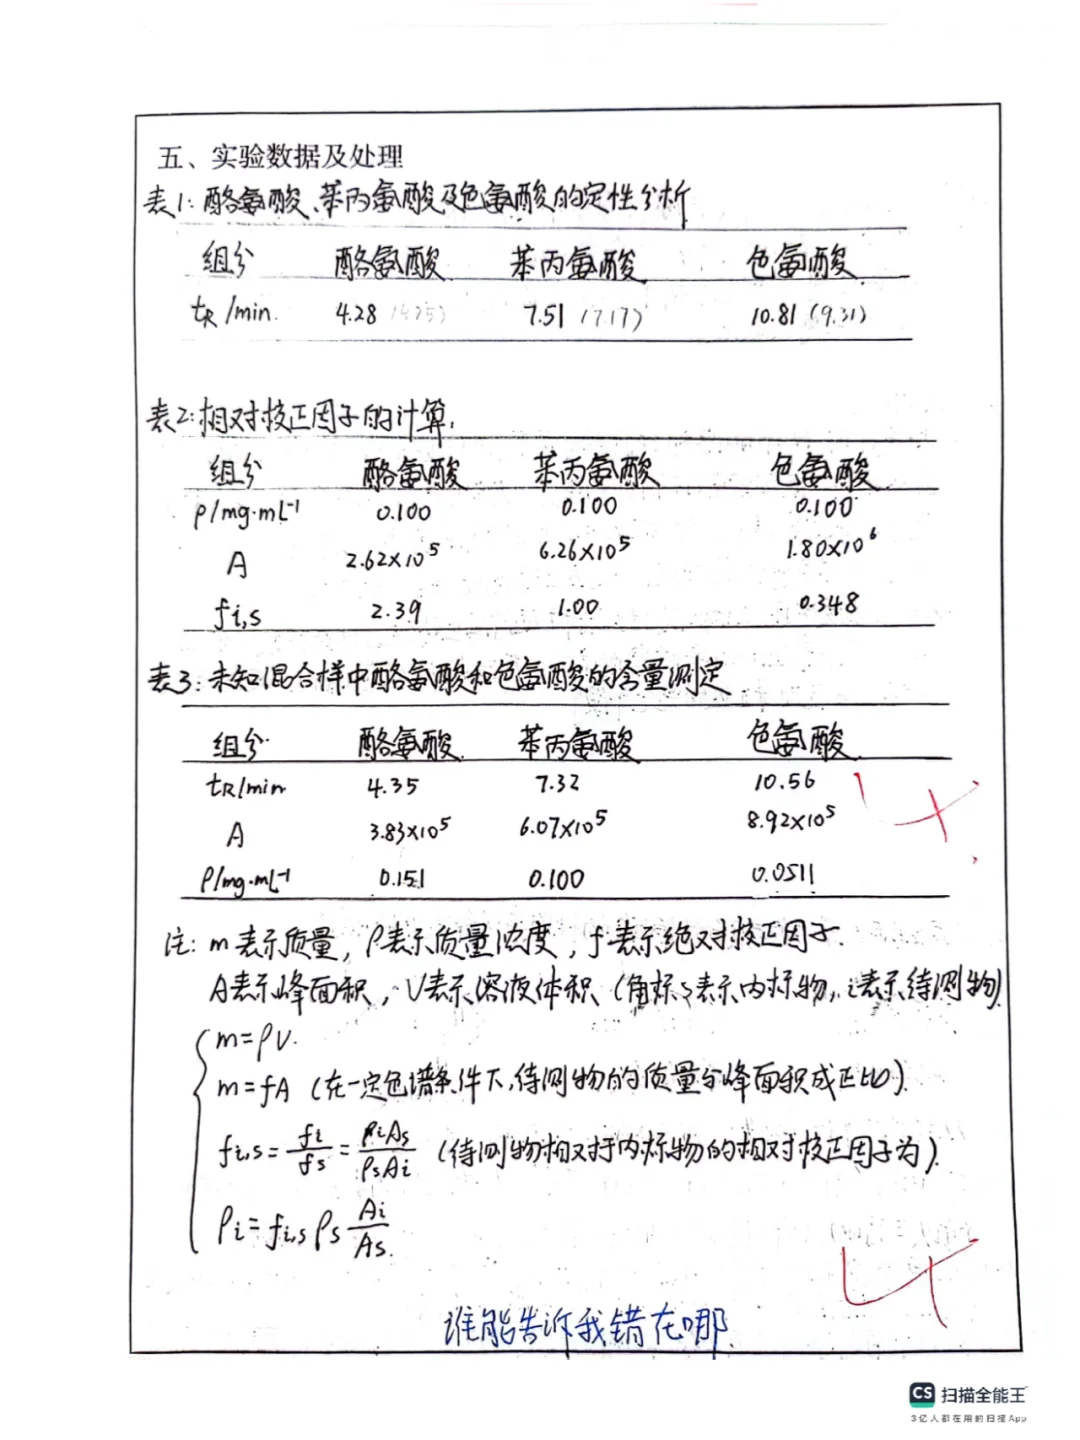 五、实验数据及处理
表1:酪氨酸、苯丙氨酸及色氨酸的定性分析
组分 酪氨酸 苯丙氨酸 色氨酸
tR/min. 4.28 (4.25) 7.51 (7.17) 10.81 (9.31)
表2:相对校正因子的计算.
组分 酪氨酸 苯丙氨酸 色氨酸
ρ/mg·mL⁻¹ 0.100 0.100 0.100
A 2.62×10⁵ 6.26×10⁵ 1.80×10⁶
fi,s 2.39 1.00 0.348
表3:未知混合样中酪氨酸和色氨酸的含量测定
组分 酪氨酸 苯丙氨酸 色氨酸
tR/min 4.35 7.32 10.56
A 3.83×10⁵ 6.07×10⁵ 8.92×10⁵
ρ/mg·mL⁻¹ 0.151 0.100 0.0511
注: m表示质量, ρ表示质量浓度, f表示绝对校正因子.
A表示峰面积, V表示溶液体积、(角标s表示内标物, i表示待测物)
m=ρV.
m=fA (在一定色谱条件下,待测物的质量与峰面积成正比).
fi,s=fi/fs=ρiAs/ρsAi (待测物相对于内标物的相对校正因子为).
ρi=fi,s ρs Ai/As.
谁能告诉我错在哪
CS 扫描全能王
3亿人都在用的扫描App